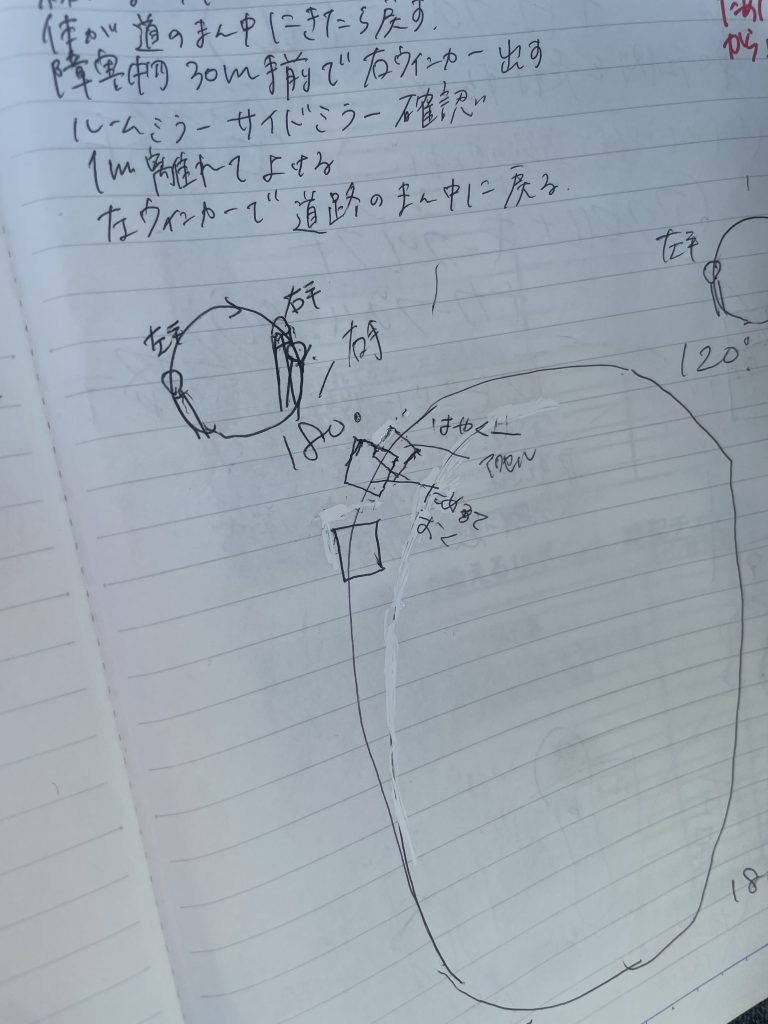 体が道のまん中にきたら戻す.
障害物 30m手前で右ウィンカー出す
ルームミラー サイドミラー 確認
1m離れてよせる
左ウィンカーで道路のまん中に戻る.
左手
右手
右手
180°
左手
120°
から
はやく
アクセル
おく
18